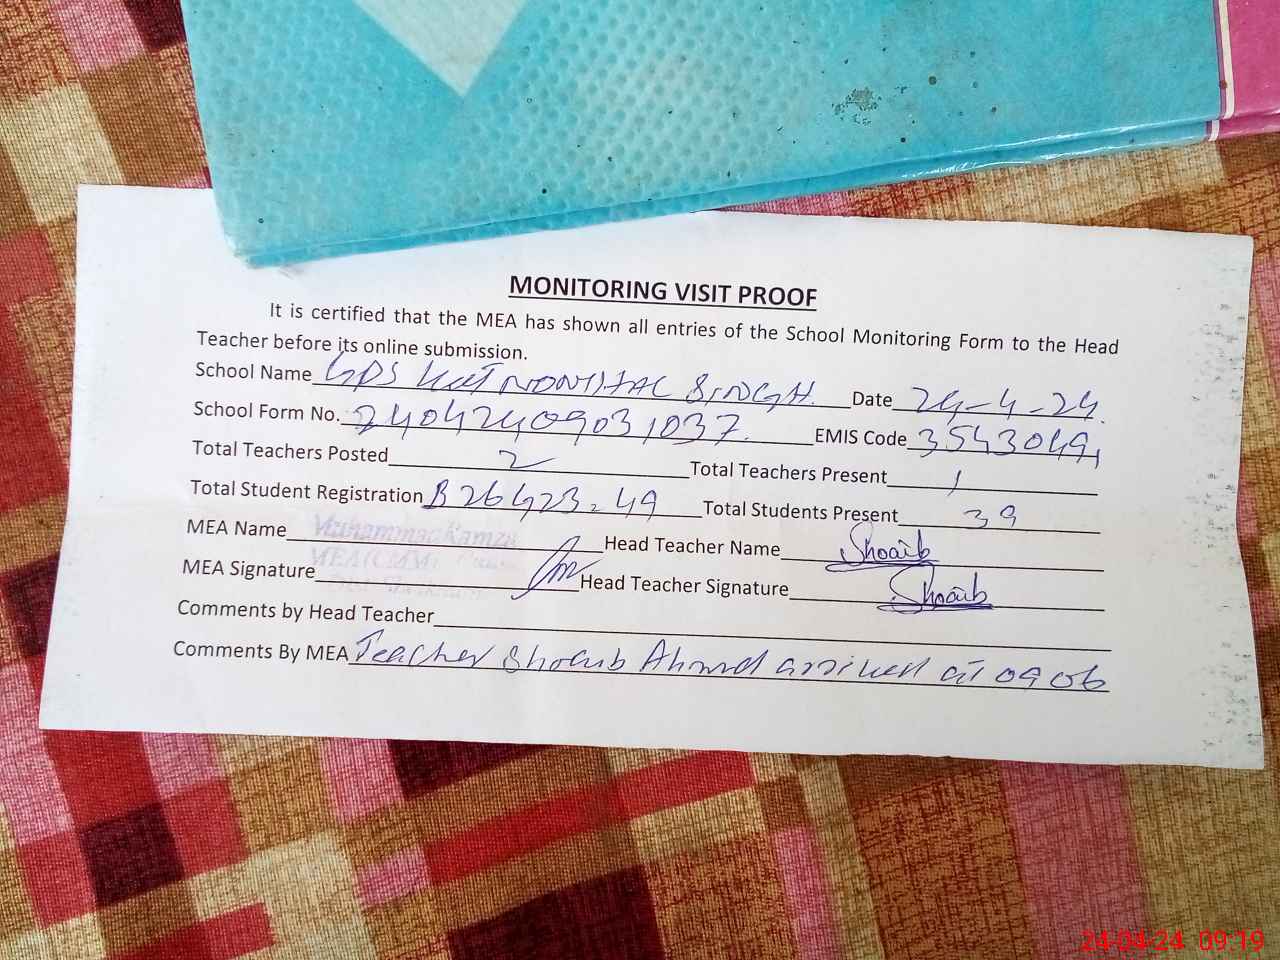 MONITORING VISIT PROOF
It is certified that the MEA has shown all entries of the School Monitoring Form to the Head
Teacher before its online submission.
School Name GPS SINGH. Date 24-4-24
School Form No. 24042409031037. EMIS Code 35430491
Total Teachers Posted 2 Total Teachers Present 1
Total Student Registration B26G23=49 Total Students Present 39
MEA Name Muhammad Ramzan Head Teacher Name Shoaib
MEA (CMM)
MEA Signature Head Teacher Signature Shoaib
Comments by Head Teacher
Comments By MEA Teacher Shoaib Ahmad arrived at 0906
24-04-24 09:19